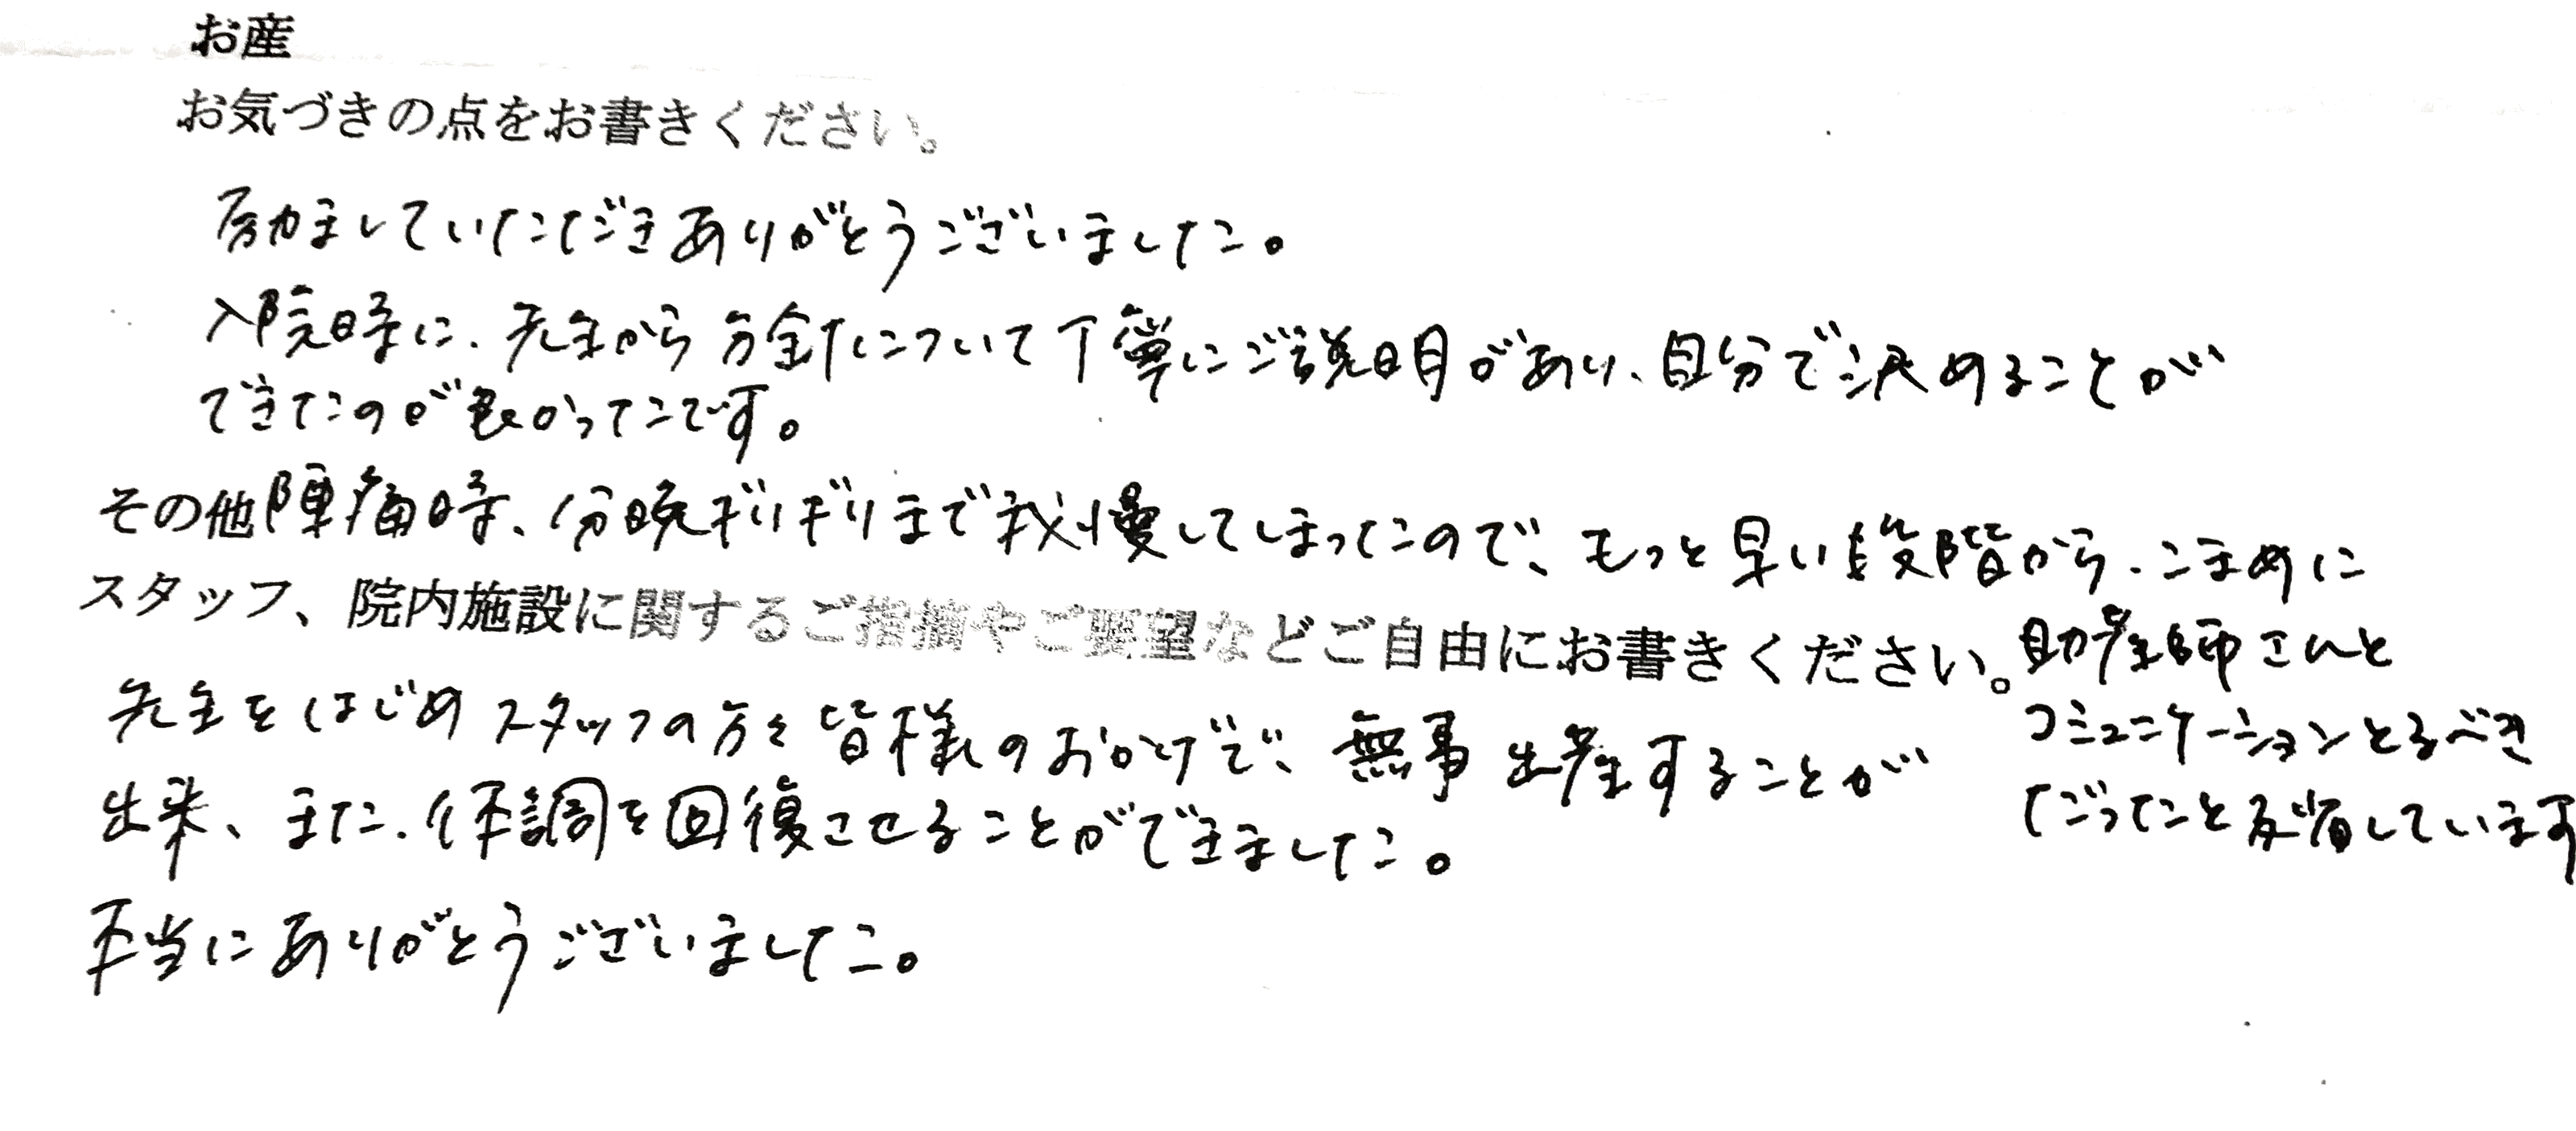 お産
お気づきの点をお書きください。
励ましていただきありがとうございました。
入院時に、先生から方針について丁寧にご説明があり、自分で決めることが
できたのが良かったです。
その他
陣痛時、分娩ギリギリまで我慢してしまったので、もっと早い段階から、こまめに
助産師さんと
コミュニケーションとるべき
だったと反省しています
スタッフ、院内施設に関するご指摘やご要望などご自由にお書きください。
先生をはじめスタッフの方々皆様のおかげで、無事出産することが
出来、また、体調を回復させることができました。
本当にありがとうございました。